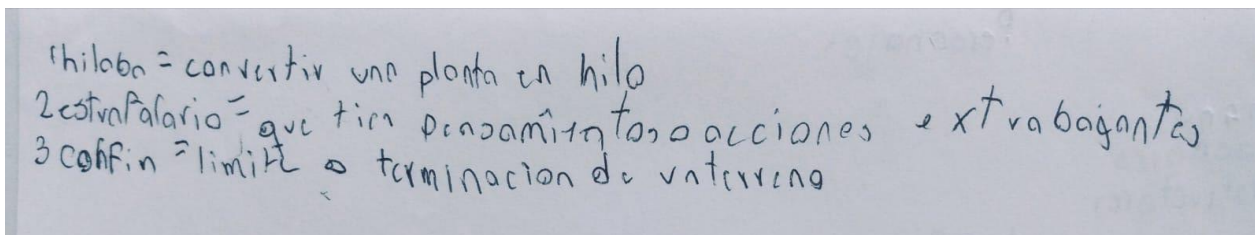 1hilaba = convertir una planta en hilo
2 estrafalario = que tien pensamientos o acciones extrabagantes
3 confin = limite o terminacion de unterreno